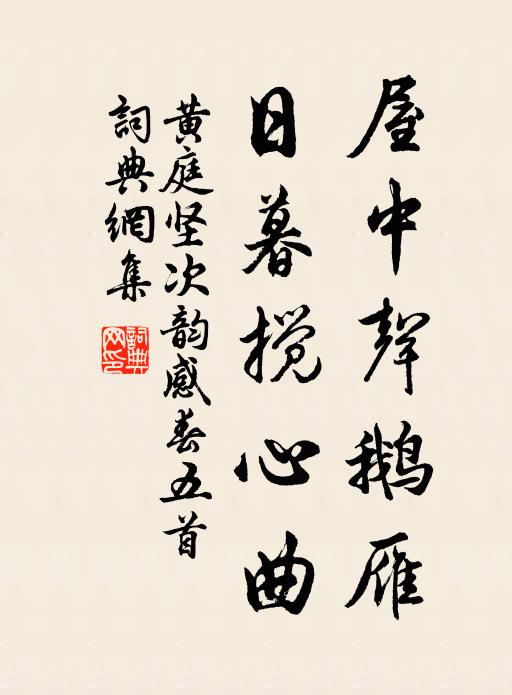 屋中聲鹅雁
日暮搅心曲
黄庭坚次韵感春五首
詞典網集
詞典网印